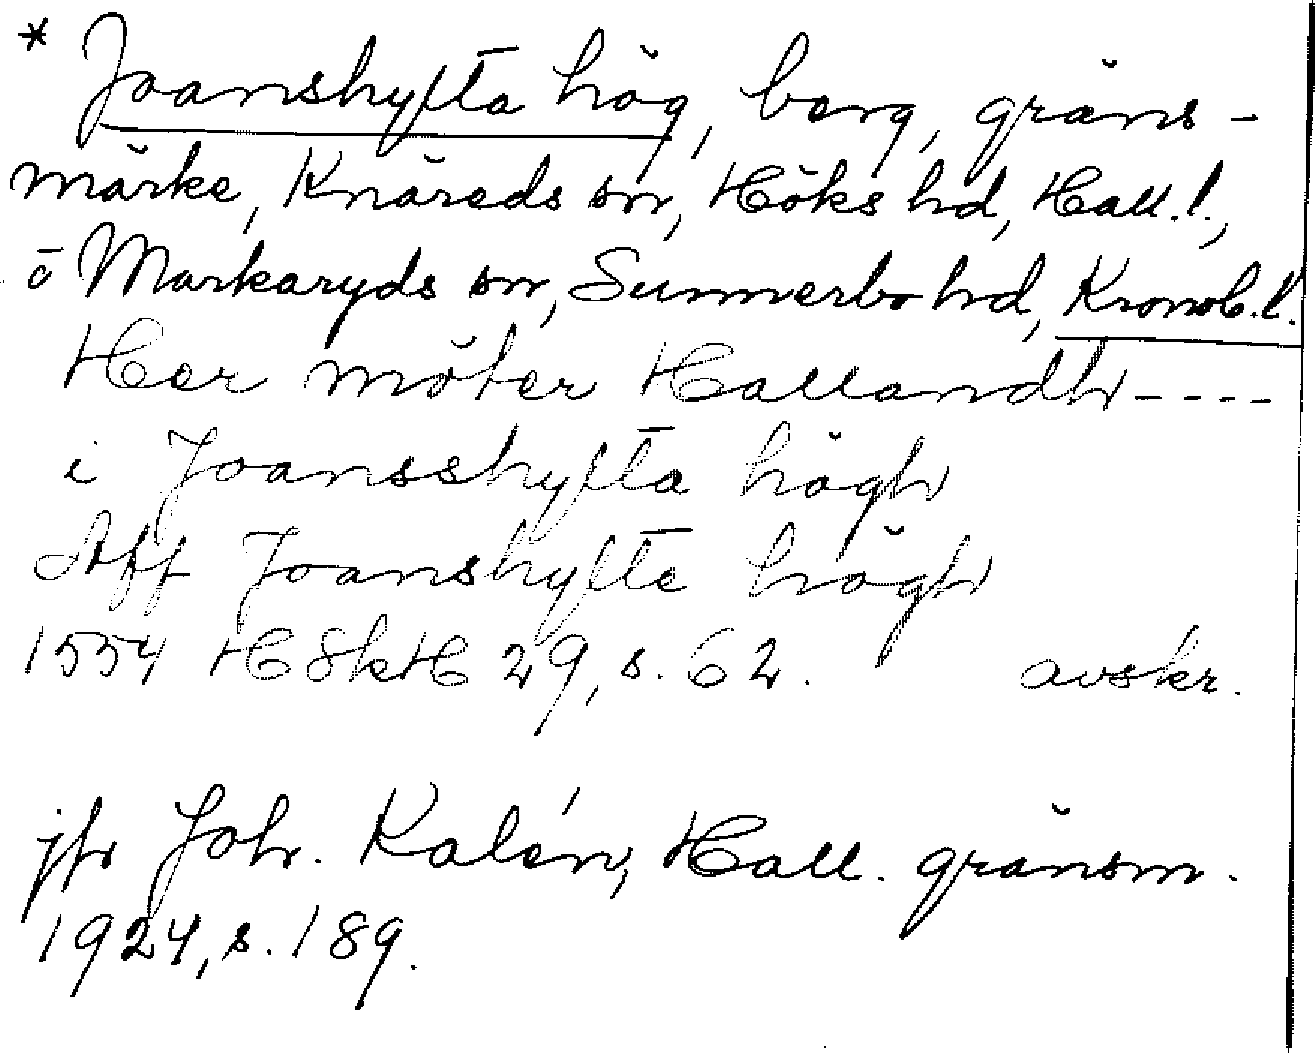 * Joanshylta hög, berg, gräns-
märke, Knäreds sn, Höks hd, Hall.l.,
o Markaryds sn, Sunnerbo hd, Kronob.l.
Her möter Hallandh----
i Joansshylta högh
Aff Joanshylte högh
1554 HSkH 29, s. 62. avskr.
jfr Joh. Kalén, Hall. gränsm.
1924, s. 189.